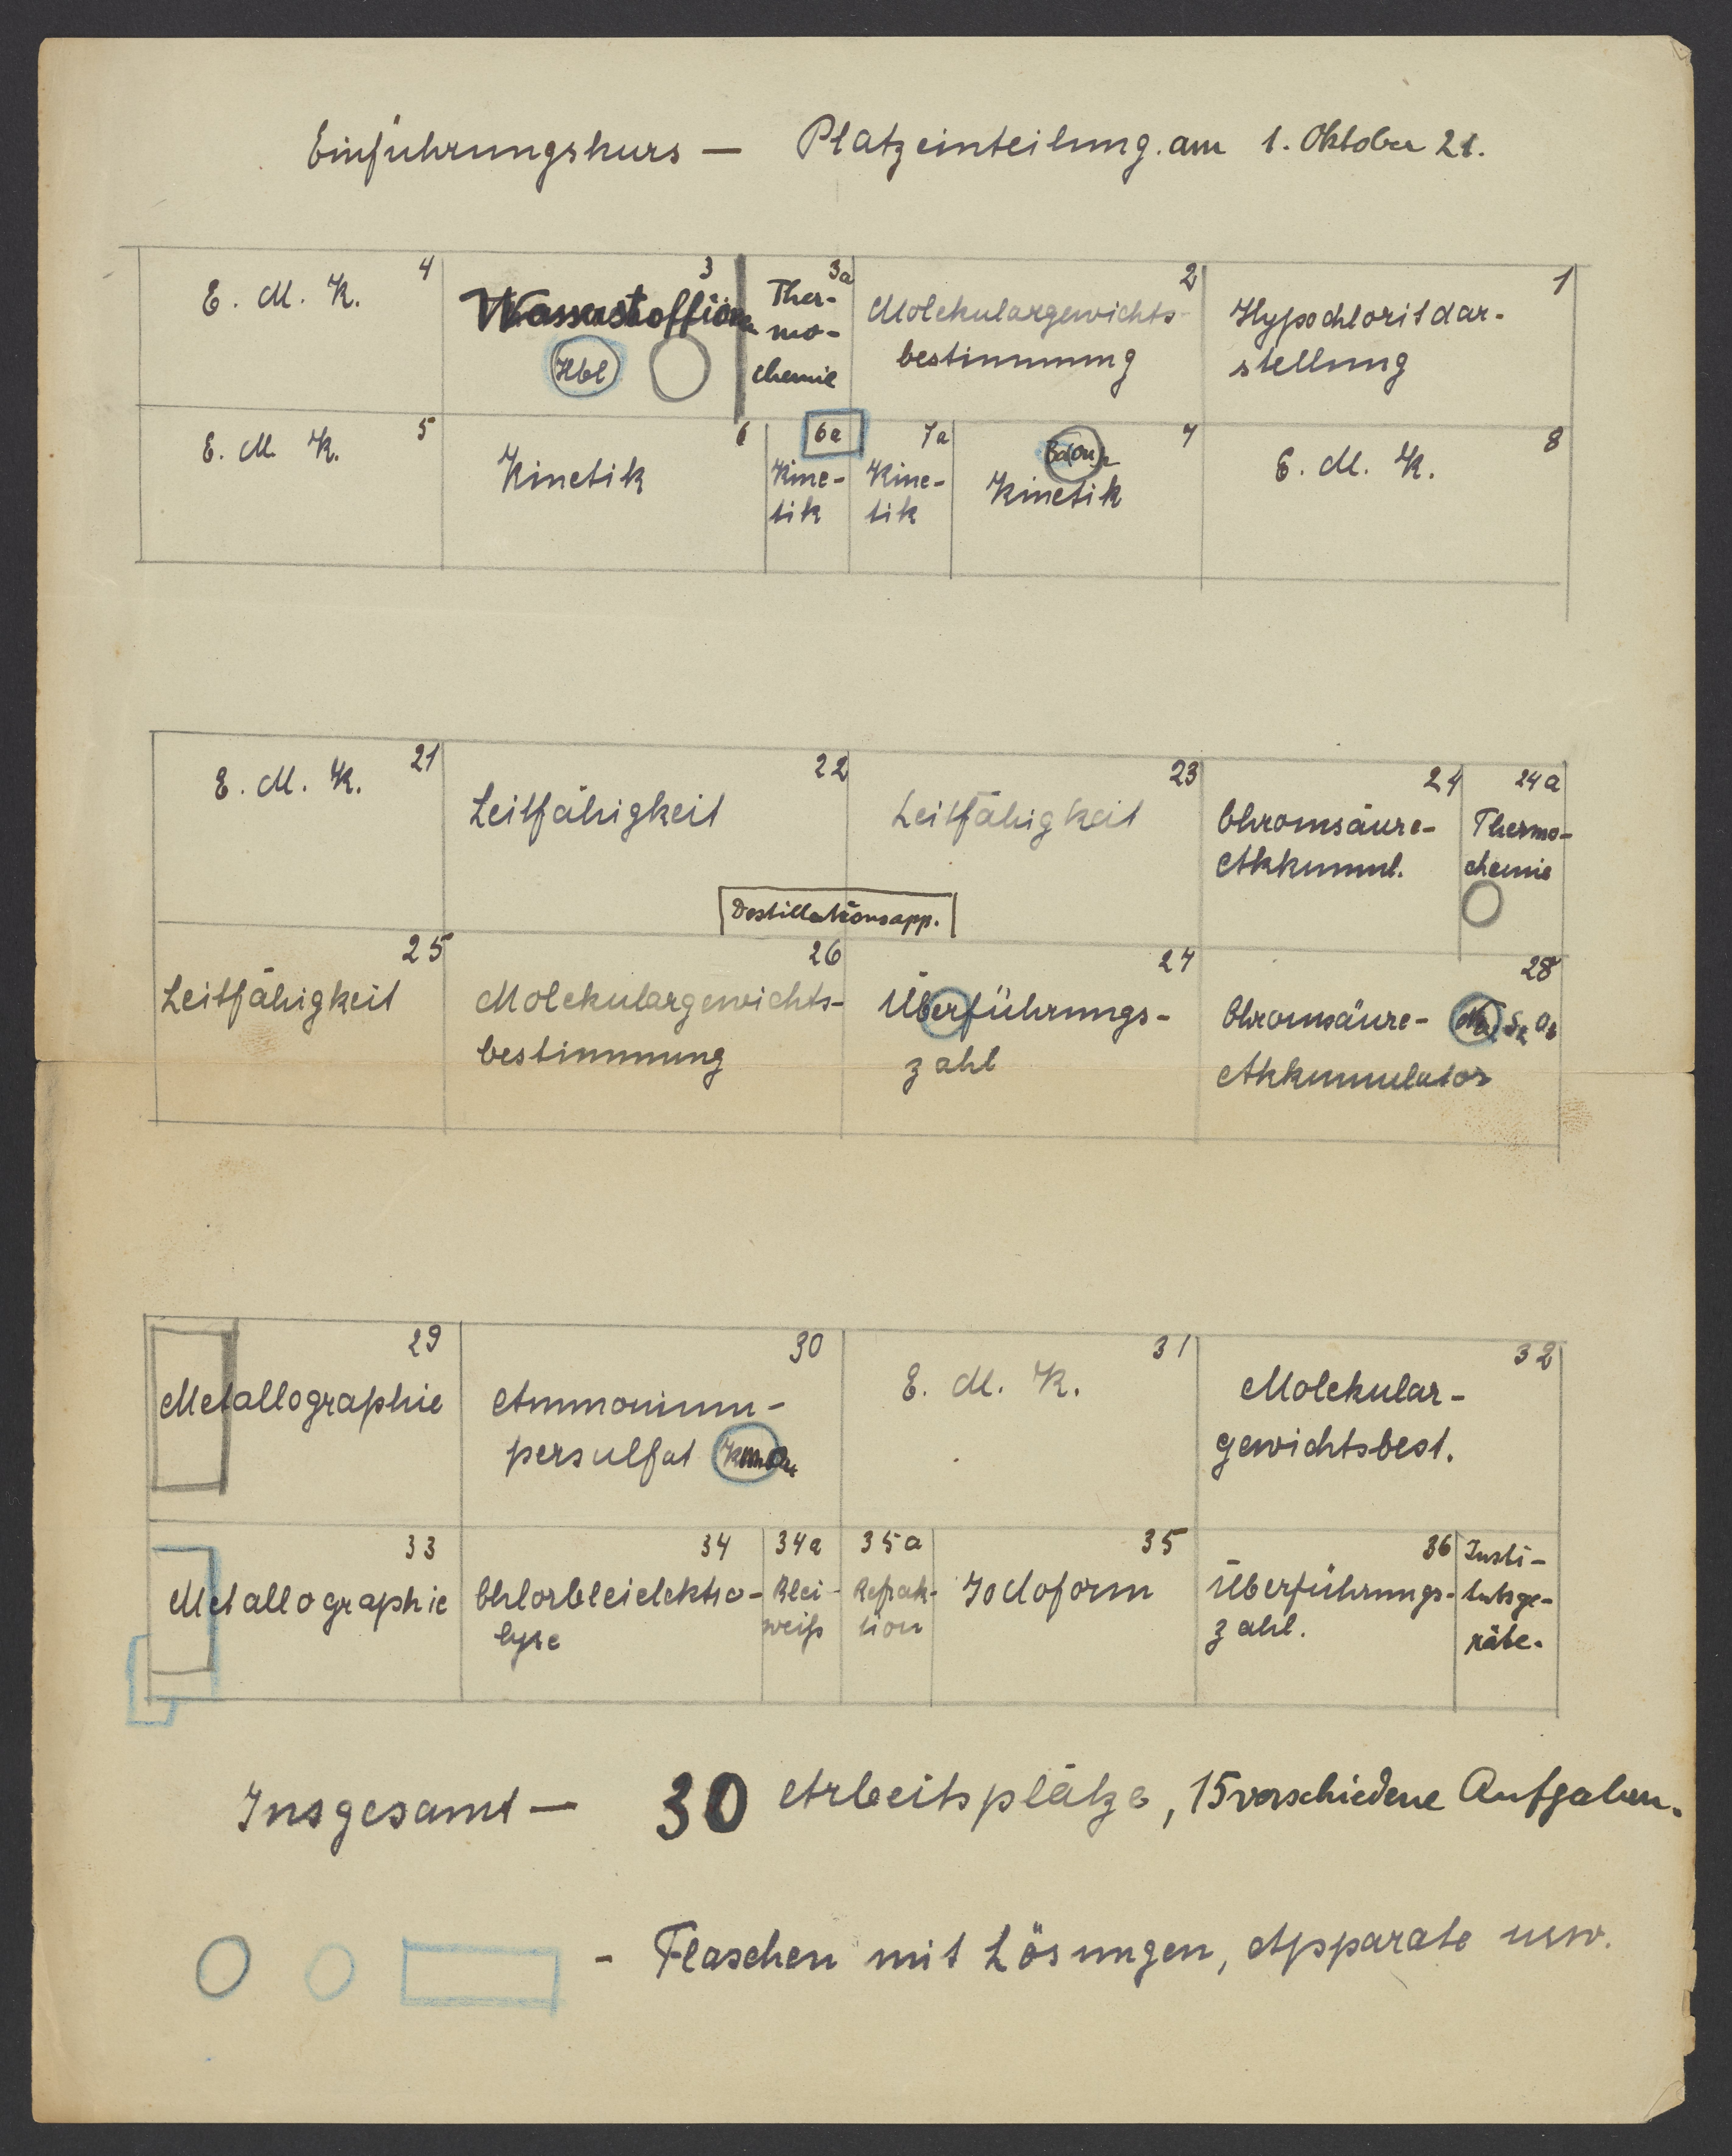 Einführungskurs — Platzeinteilung am 1. Oktober 21.
4
E. M. K.
3
Wasserstoffione
Hbl
3a
Ther-
mo-
chemie
2
Molekulargewichts-
bestimmung
1
Hypochloritdar-
stellung
5
E. M. K.
6
Kinetik
6a
Kine-
tik
7a
Kine-
tik
7
Kinetik
8
E. M. K.
21
E. M. K.
22
Leitfähigkeit
23
Leitfähigkeit
24
Chromsäure-
Akkumul.
24a
Thermo-
chemie
Destillationsapp.
25
Leitfähigkeit
26
Molekulargewichts-
bestimmung
27
Überführungs-
zahl
28
Chromsäure-
Akkumulator
29
Metallographie
30
Ammonium-
persulfat KMnO4
31
E. M. K.
32
Molekular-
gewichtsbest.
33
Metallographie
34
Chlorbleielektro-
lyse
34a
Blei-
weiß
35a
Refrak-
tion
35
Jodoform
36
Überführungs-
zahl.
Insti-
tutsge-
räte.
Insgesamt — 30 Arbeitsplätze, 15 verschiedene Aufgaben.
- Flaschen mit Lösungen, Apparate usw.